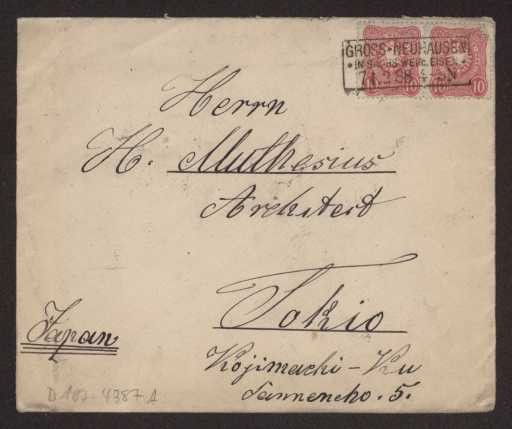 GROSS-NEUHAUSEN
* IN SACHS. WEIM. EISEN. *
10 10
Herrn
H. Muthesius
Architect
Tokio
Japan
Kojimachi-Ku
Sannencho. 5.